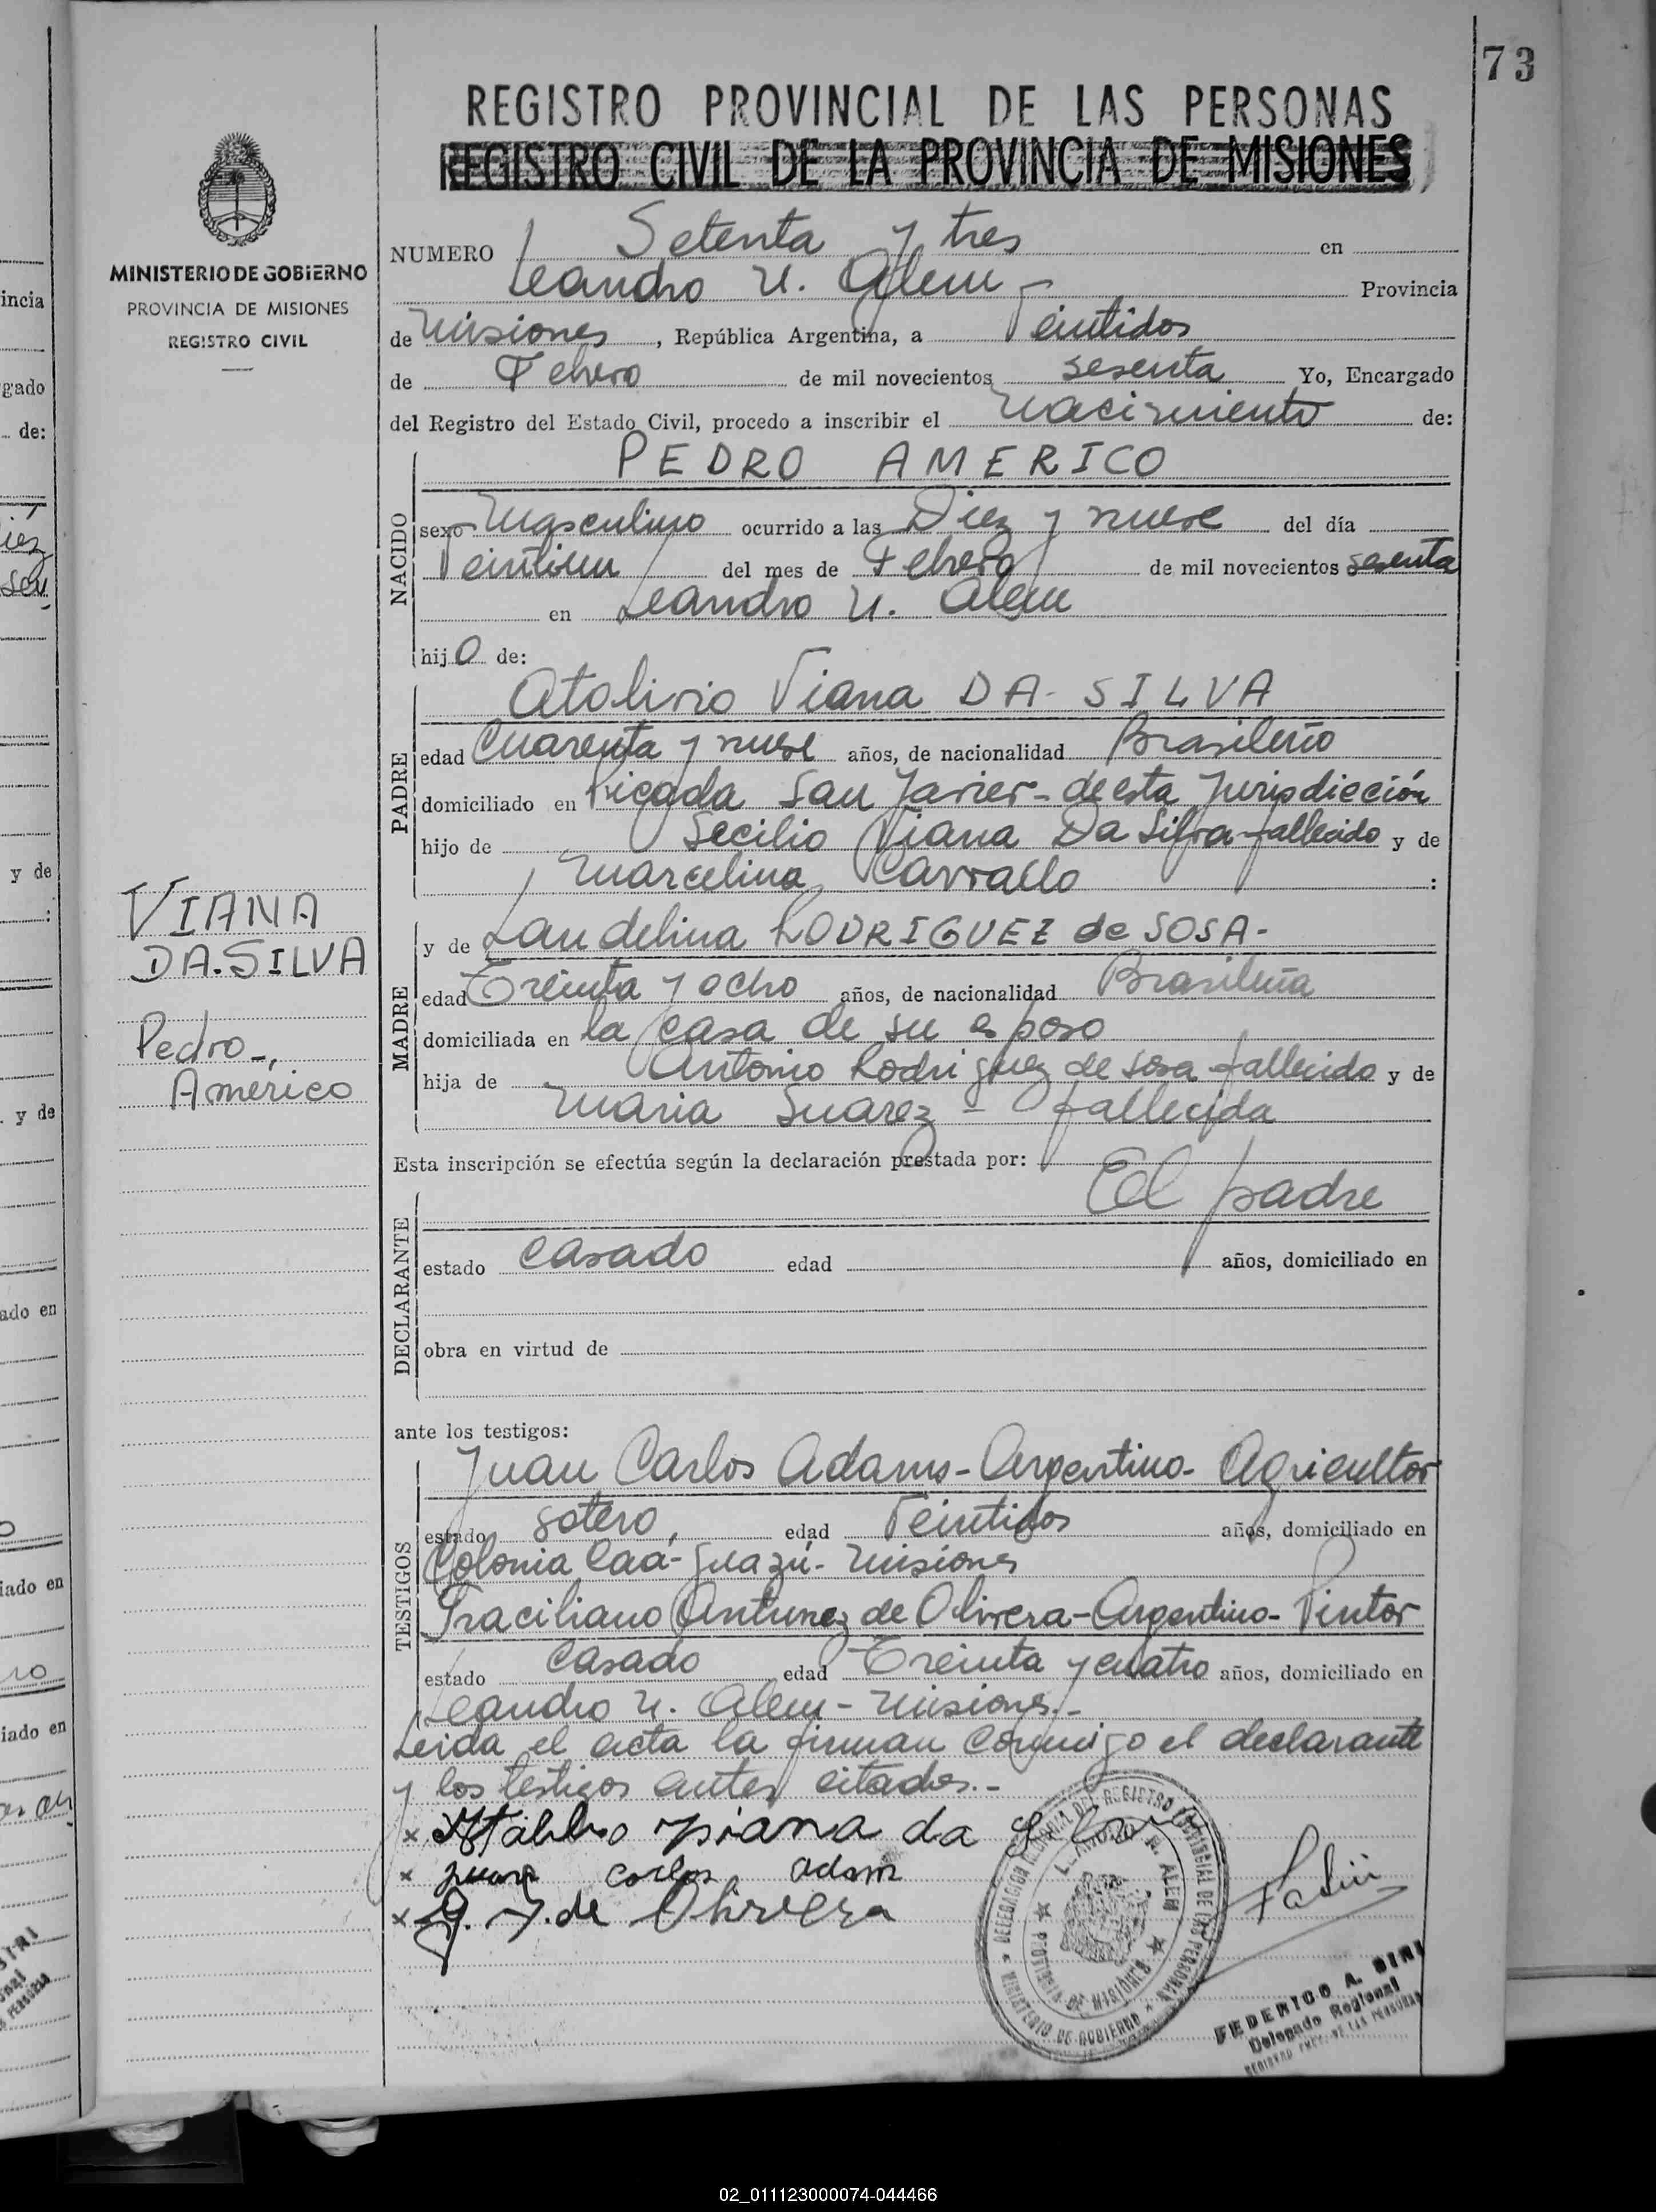 73
REGISTRO PROVINCIAL DE LAS PERSONAS
REGISTRO CIVIL DE LA PROVINCIA DE MISIONES
MINISTERIO DE GOBIERNO
PROVINCIA DE MISIONES
REGISTRO CIVIL
NUMERO Setenta y tres en
Leandro N. Alem Provincia
de Misiones, República Argentina, a Veintidos
de Febrero de mil novecientos sesenta Yo, Encargado
del Registro del Estado Civil, procedo a inscribir el nacimiento de:
NACIDO
PEDRO AMERICO
sexo Masculino ocurrido a las Diez y nueve del día
Veintiun del mes de Febrero de mil novecientos sesenta
en Leandro N. Alem
hijo de:
PADRE
Atalivio Viana DA-SILVA
edad Cuarenta y nueve años, de nacionalidad Brasileño
domiciliado en Picada San Javier-de esta Jurisdicción
hijo de Secilio Viana Da Silva-fallecido y de
Marcelina Carvallo :
VIANA
DA.SILVA
Pedro-,
Americo
MADRE
y de Laudelina RODRIGUEZ de SOSA-
edad Treinta y ocho años, de nacionalidad Brasileña
domiciliada en la casa de su esposo
hija de Antonio Rodriguez de sosa-fallecido y de
Maria Suarez - fallecida
Esta inscripción se efectúa según la declaración prestada por:
DECLARANTE
El padre
estado Casado edad años, domiciliado en
obra en virtud de
ante los testigos:
TESTIGOS
Juan Carlos Adams-Argentino-Agricultor
estado soltero, edad Veintidos años, domiciliado en
Colonia Caá-Guazú-Misiones
Graciliano Antunez de Olivera-Argentino-Pintor
estado Casado edad Treinta y cuatro años, domiciliado en
Leandro N. Alem-Misiones.-
Leida el acta la firman conmigo el declarante
y los testigos antes citados.-
x viana da
x juan carlos adam
x de Olivera
DELEGACION REGIONAL DEL REGISTRO PROVINCIAL DE LAS PERSONAS
MINISTERIO DE GOBIERNO
LEANDRO N. ALEM
PROVINCIA DE MISIONES
FEDERICO A. BINI
Delegado Regional
REGISTRO PROV. DE LAS PERSONAS
02_011123000074-044466